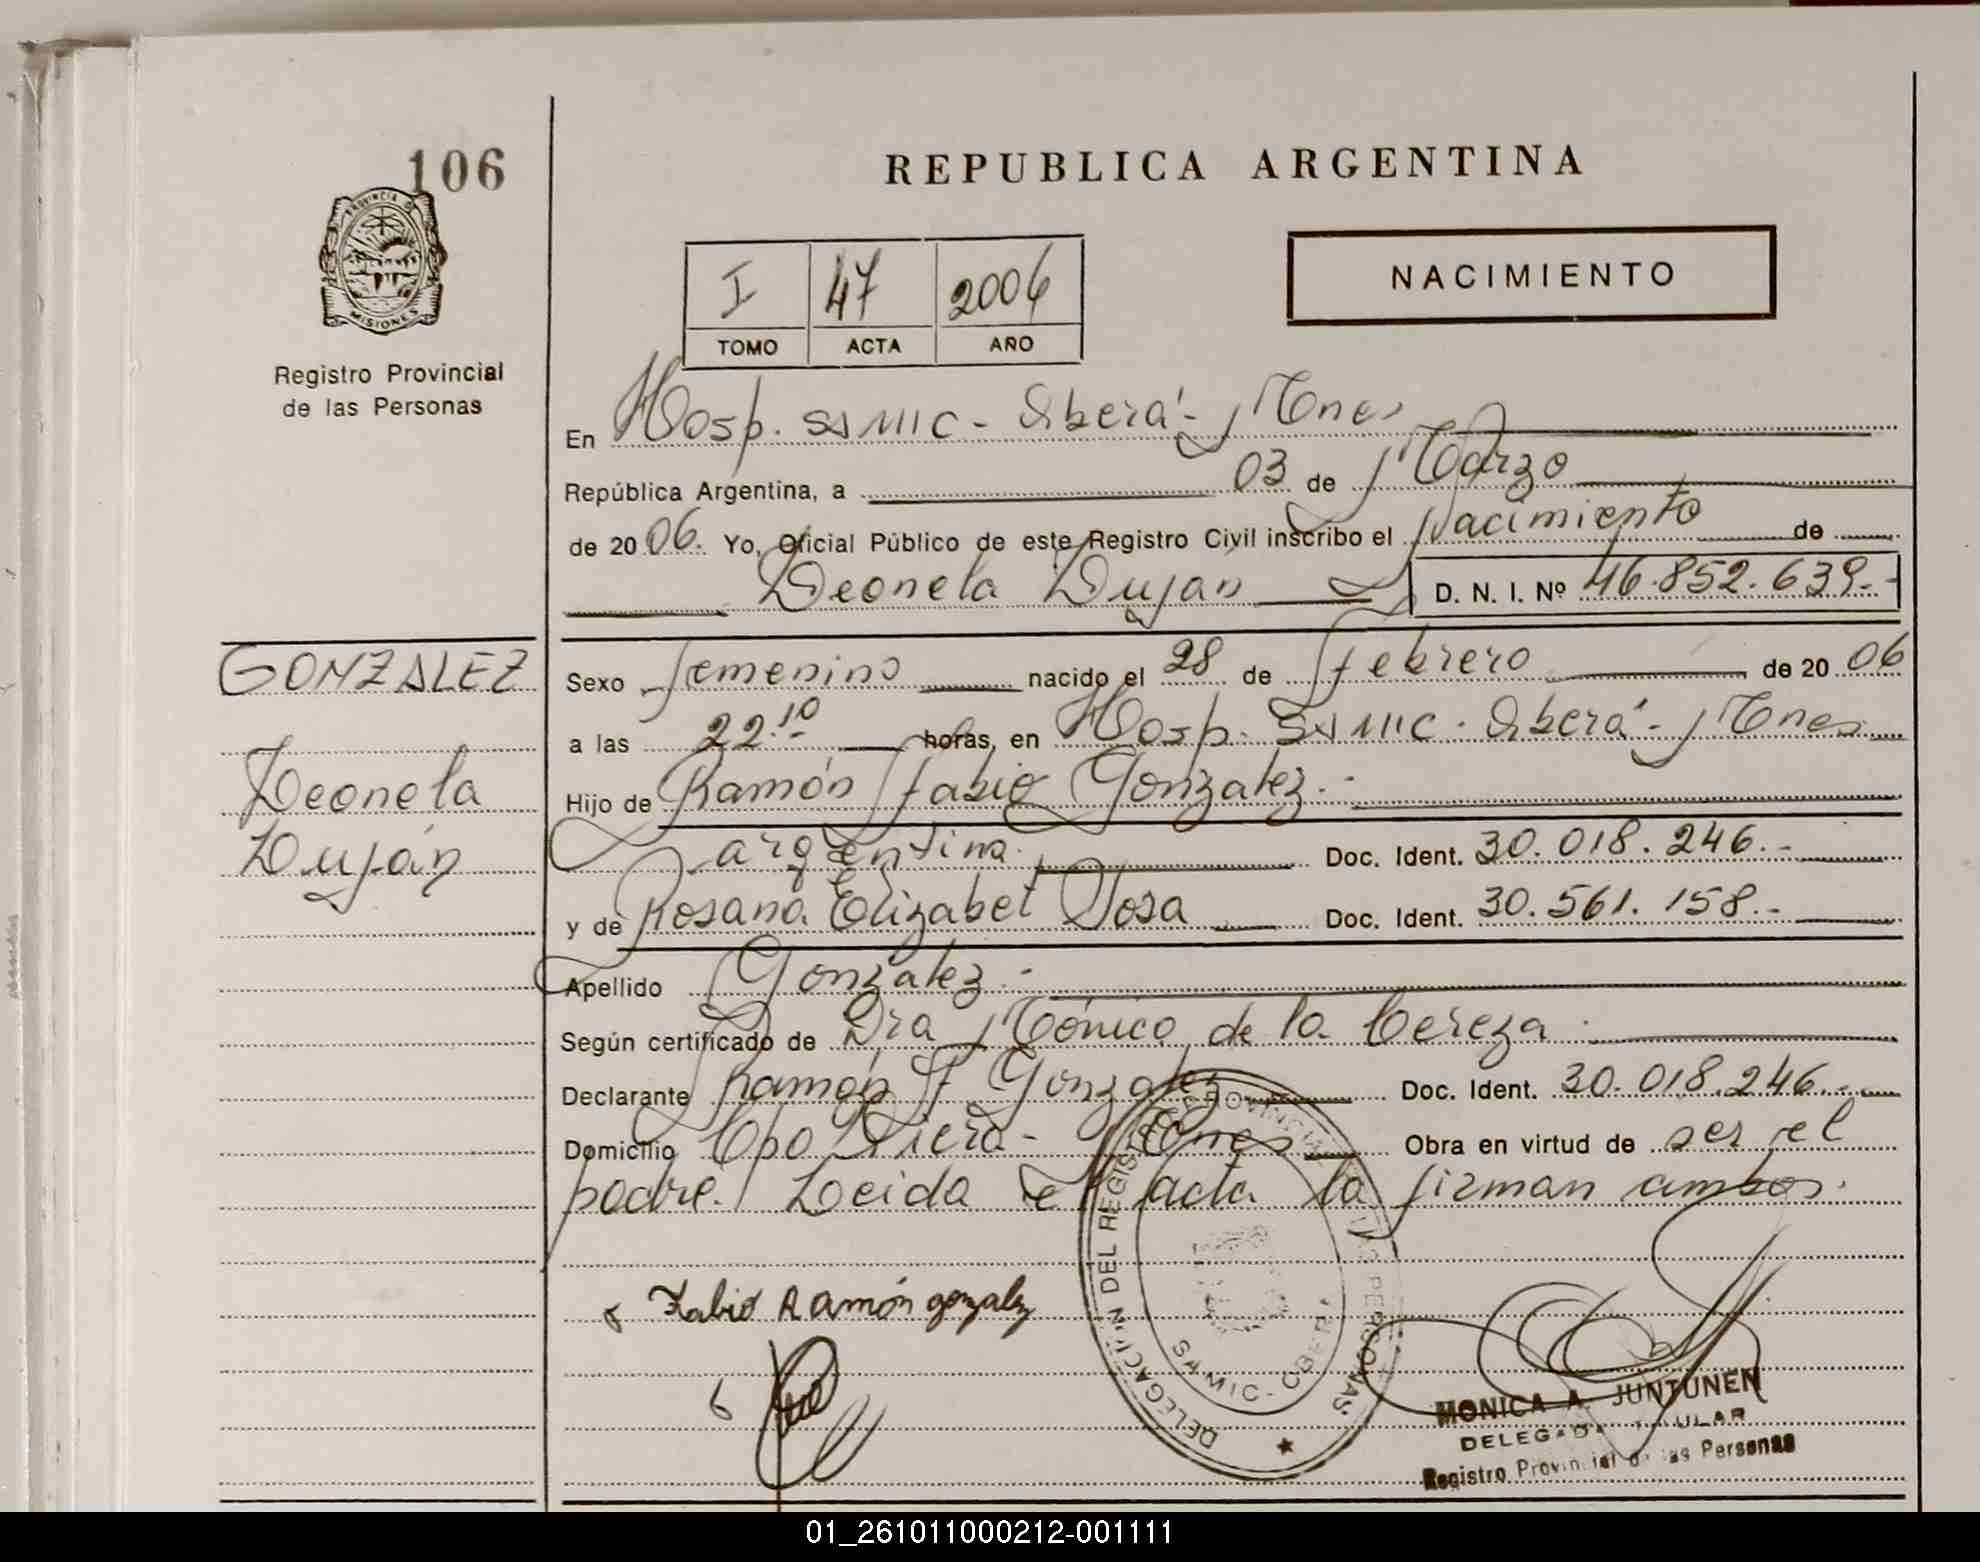 106
REPUBLICA ARGENTINA
PROVINCIA DE
MISIONES
Registro Provincial
de las Personas
I 47 2006
TOMO ACTA AÑO
NACIMIENTO
En Hosp. SAMIC - Oberá - Mnes
República Argentina, a 03 de Marzo
de 2006. Yo, Oficial Público de este Registro Civil inscribo el Nacimiento de
Leonela Luján D. N. I. Nº 46.852.639.-
GONZALEZ
Leonela
Luján
Sexo femenino nacido el 28 de febrero de 2006
a las 22.10 horas, en Hosp. SAMIC - Oberá - Mnes
Hijo de Ramón Fabio Gonzalez.-
argentina. Doc. Ident. 30.018.246.-
y de Rosana Elizabet Sosa Doc. Ident. 30.561.158.-
Apellido Gonzalez.-
Según certificado de Dra Mónica de la Cereza.
Declarante Ramón F Gonzalez Doc. Ident. 30.018.246.-
Domicilio Cpo Viera - Mnes Obra en virtud de ser el
padre. Leida el acta la firman ambos.
Fabio Ramón gonzalez
DELEGACION DEL REGISTRO PROVINCIAL DE LAS PERSONAS
SAMIC - OBERA
MONICA A. JUNTUNEN
DELEGADA TITULAR
Registro Provincial de las Personas
01_261011000212-001111